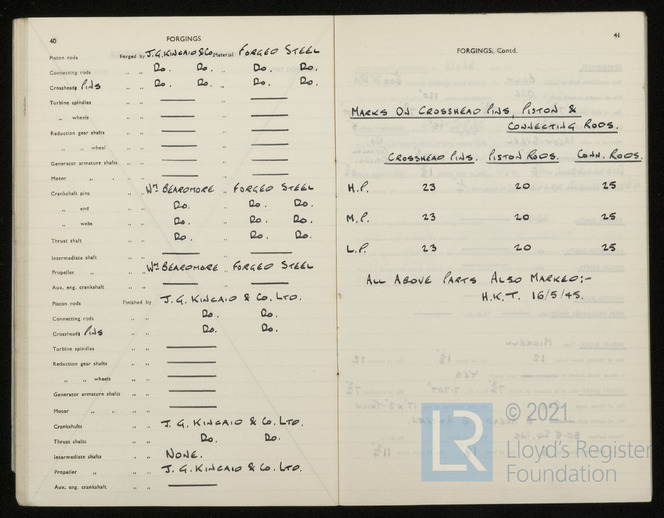 40
FORGINGS
Piston rods Forged by J. G. KINCAID & Co. Material FORGED STEEL
Connecting rods " " Do. Do. " Do. Do.
Crosshead PINS " " Do. Do. " Do. Do.
Turbine spindles " " — " —
" wheels " " — " —
Reduction gear shafts " " — " —
" " wheel " " — " —
Generator armature shafts " " — " —
Motor " " " " — " —
Crankshaft pins " " Wm BEARDMORE " FORGED STEEL
" end " " Do. " Do. Do.
" webs " " Do. " Do. Do.
Thrust shaft " " Do. " Do. Do.
Intermediate shaft " " — " —
Propeller " " " Wm BEARDMORE " FORGED STEEL
Aux. eng. crankshaft " " — " —
Piston rods Finished by J. G. KINCAID & Co. LTD.
Connecting rods " " Do. Do.
Crosshead PINS " " Do. Do.
Turbine spindles " " —
Reduction gear shafts " " —
" " wheels " " —
Generator armature shafts " " —
Motor " " " " —
Crankshafts " " J. G. KINCAID & Co. LTD.
Thrust shafts " " Do. Do.
Intermediate shafts " " NONE.
Propeller " " " J. G. KINCAID & Co. LTD.
Aux. eng. crankshaft " " —
41
FORGINGS, Contd.
MARKS ON CROSSHEAD PINS, PISTON &
CONNECTING RODS.
CROSSHEAD PINS. PISTON RODS. CONN. RODS.
H.P. 23 20 25
M.P. 23 20 25
L.P. 23 20 25
ALL ABOVE PARTS ALSO MARKED:-
H.K.T. 16/5/45.
LR © 2021
Lloyd's Register
Foundation